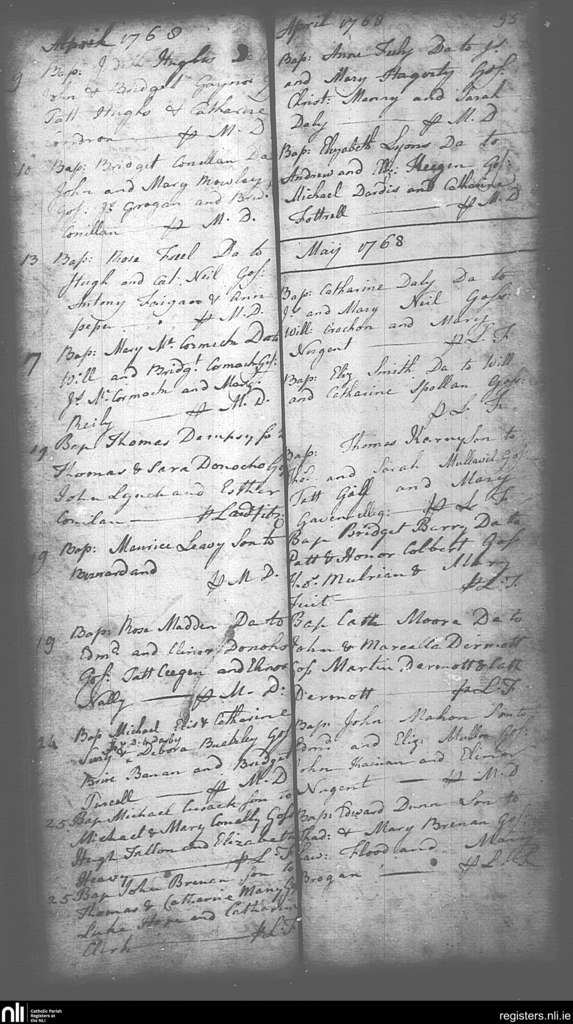 April 1768
9 Bap: Hughs D:
John & Bridget Gaynor G
Patt Hughs & Catharine
M. D
10 Bap: Bridget Conillan Da
John and Mary Mowley
Gos: Js Grogan and Brid:
Conillan M. D.
13 Bap: Rose Da to
Hugh and Cat: Neil Gos:
Antony & Ann
M. D.
17 Bap: Mary Mc Cormack Da to
Will and Bridgt Cormack Gos:
Js Mc Cormack and Mary
Reily M. D.
19 Bap Thomas Dempsy son
Thomas & Sara Donocho Gos
John Lynch and Esther
Conilan
19 Bap: Maurice Leavy Son to
Bernard and M D.
19 Bap: Rose Madden Da to
Edmd and Elinor Donoho
Gos: Patt Ceegan and Elinor
Nally M. D:
24 Bap Michael & Catharine
& Debora Buckley Gos
Banan and Bridget
Farcell M. D
25 Bap Michael Cusack son to
Michael & Mary Conally Gos
Hugh Fallon and Elizabeth
Heavy L. F
25 Bap John Brenan son to
Thomas & Catharine Gos
Luke and Catharine
Clerk L. F.
April 1768 35
Bap: Anne Da to Js
and Mary Hagerty Gos:
Christ: and Sarah
Daly M. D
Bap: Elizabeth Lyons Da to
Andrew and Eliz: Keegen Gos:
Michael Dardis and Catharine
Fottrell M. D
Maij 1768
Bap: Catharine Daly Da to
Js and Mary Neil Goss:
Will: and Marcy
Nugent L. F.
Bap: Eliz Smith Da to Will
and Catharine Spollan Goss:
L. F.
Bap: Thomas Karny son to
Thos: and Sarah Gos:
Patt Gaff and Mary
L. F
Bap Bridget Berry Da to
Patt & Honor Colbert Gos:
Thos: & Mary
Tuit L. F.
Bap Cathe Moora Da to
John & Marcella Dermott
Gos Martin Dermott & Cath
Dermott L. F
Bap: John Mahon Son to
Edmd: and Eliz: Mullon Gos:
John and Elinor
Nugent M. D
Bap: Edward Dunn Son to
Thad: & Mary Brenan Gos:
Law: Flood and Mary
Brogan
nli
Catholic Parish
Registers at
the NLI
registers.nli.ie